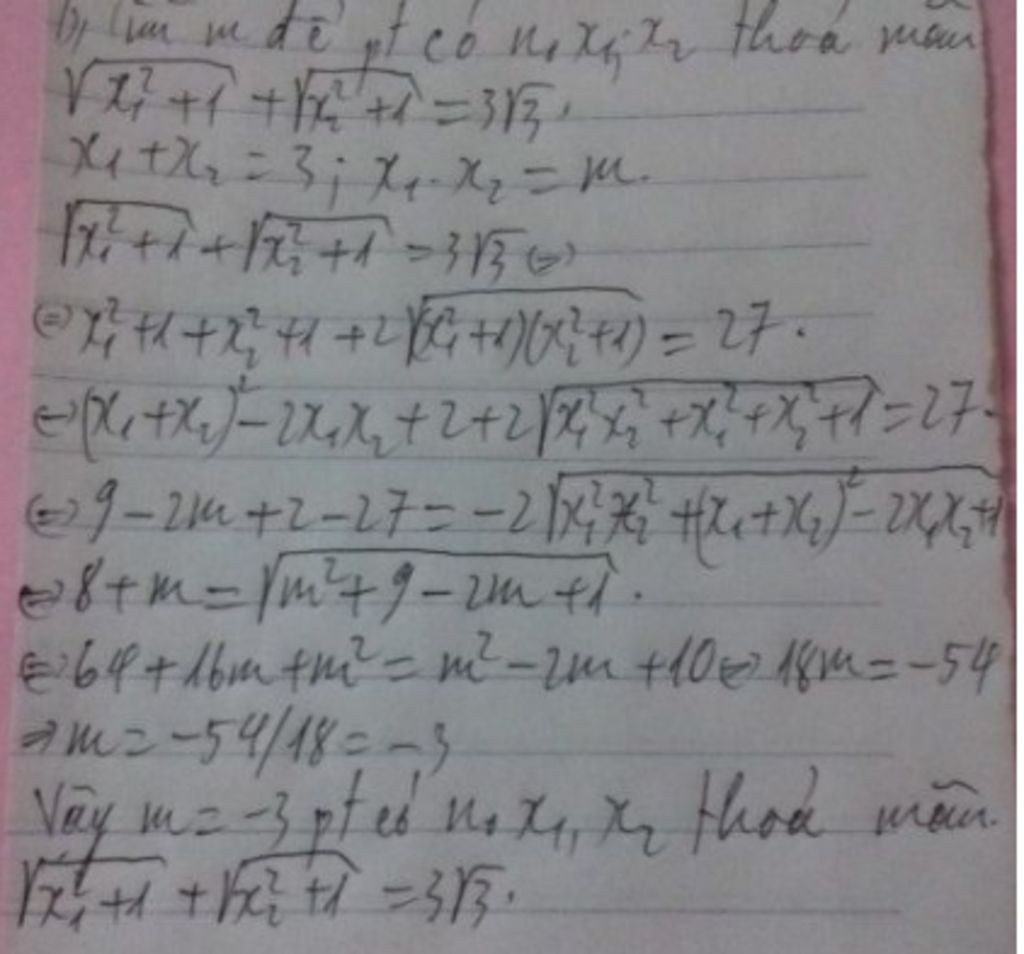 b, Tìm m để pt có n₀ x₁; x₂ thoả mãn
√(x₁² + 1) + √(x₂² + 1) = 3√3.
x₁ + x₂ = 3; x₁. x₂ = m.
√(x₁² + 1) + √(x₂² + 1) = 3√3 ⇔
⇔ x₁² + 1 + x₂² + 1 + 2√((x₁² + 1)(x₂² + 1)) = 27.
⇔ (x₁ + x₂)² − 2x₁x₂ + 2 + 2√(x₁²x₂² + x₁² + x₂² + 1) = 27.
⇔ 9 − 2m + 2 − 27 = −2√(x₁²x₂² + (x₁ + x₂)² − 2x₁x₂ + 1)
⇔ 8 + m = √(m² + 9 − 2m + 1).
⇔ 64 + 16m + m² = m² − 2m + 10 ⇔ 18m = −54
⇒ m = −54/18 = −3
Vậy m = −3 pt có n₀ x₁, x₂ thoả mãn.
√(x₁² + 1) + √(x₂² + 1) = 3√3.